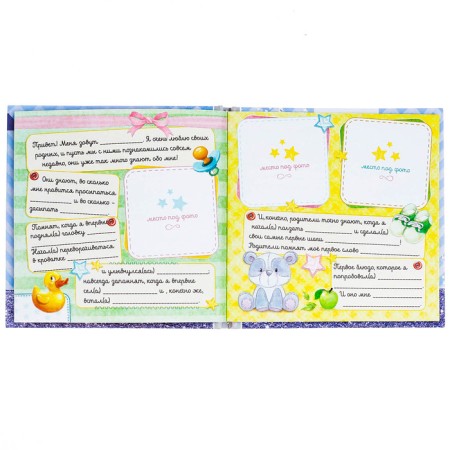 Привет! Меня зовут ____________. Я очень люблю своих
родных, и пусть мы с ними познакомились совсем
недавно, они уже так много знают обо мне!
Они знают, во сколько
мне нравится просыпаться,
________, и во сколько -
засыпать ____________.
Помнят, когда я впервые
поднял(а) головку ________.
Начал(а) переворачиваться
в кроватке ____________
и улыбнулся(ась) ____________,
навсегда запомнят, когда я впервые
сел(а) ____________ и, конечно же,
встал(а) ____________.
место под фото
место под фото
место под фото
И конечно, родители точно знают, когда я
начал(а) ползать ____________ и сделал(а)
свои самые первые шаги ____________.
Родители помнят мое первое слово
Первое блюдо, которое я
попробовал(а)
И оно мне ____________